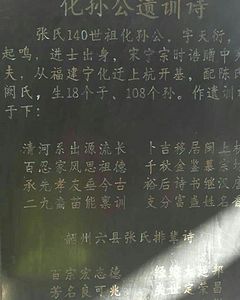 化孙公遗训诗
张氏140世祖化孙公，字天衍，
起鸣，进士出身，宋宁宗时诰赠中
夫，从福建宁化迁上杭开基，配陈氏
阙氏，生18个子、108个孙。作遗训
于下：
清河系出源流长 卜吉移居闽上杭
百忍家风思祖德 千秋金鉴慕宗
承先孝友垂今古 裕后诗书继汉
二九苗能禀训 支分富盛姓名
州六县张氏排辈诗
百宗宏志德
芳名良可兆